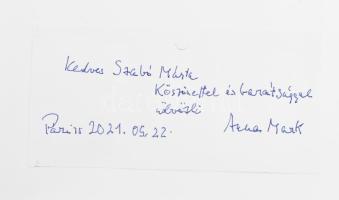 Kedves Szabó Márta
Köszönettel és barátsággal
üdvözli
Párizs 2021. 05. 22. Anna Mark